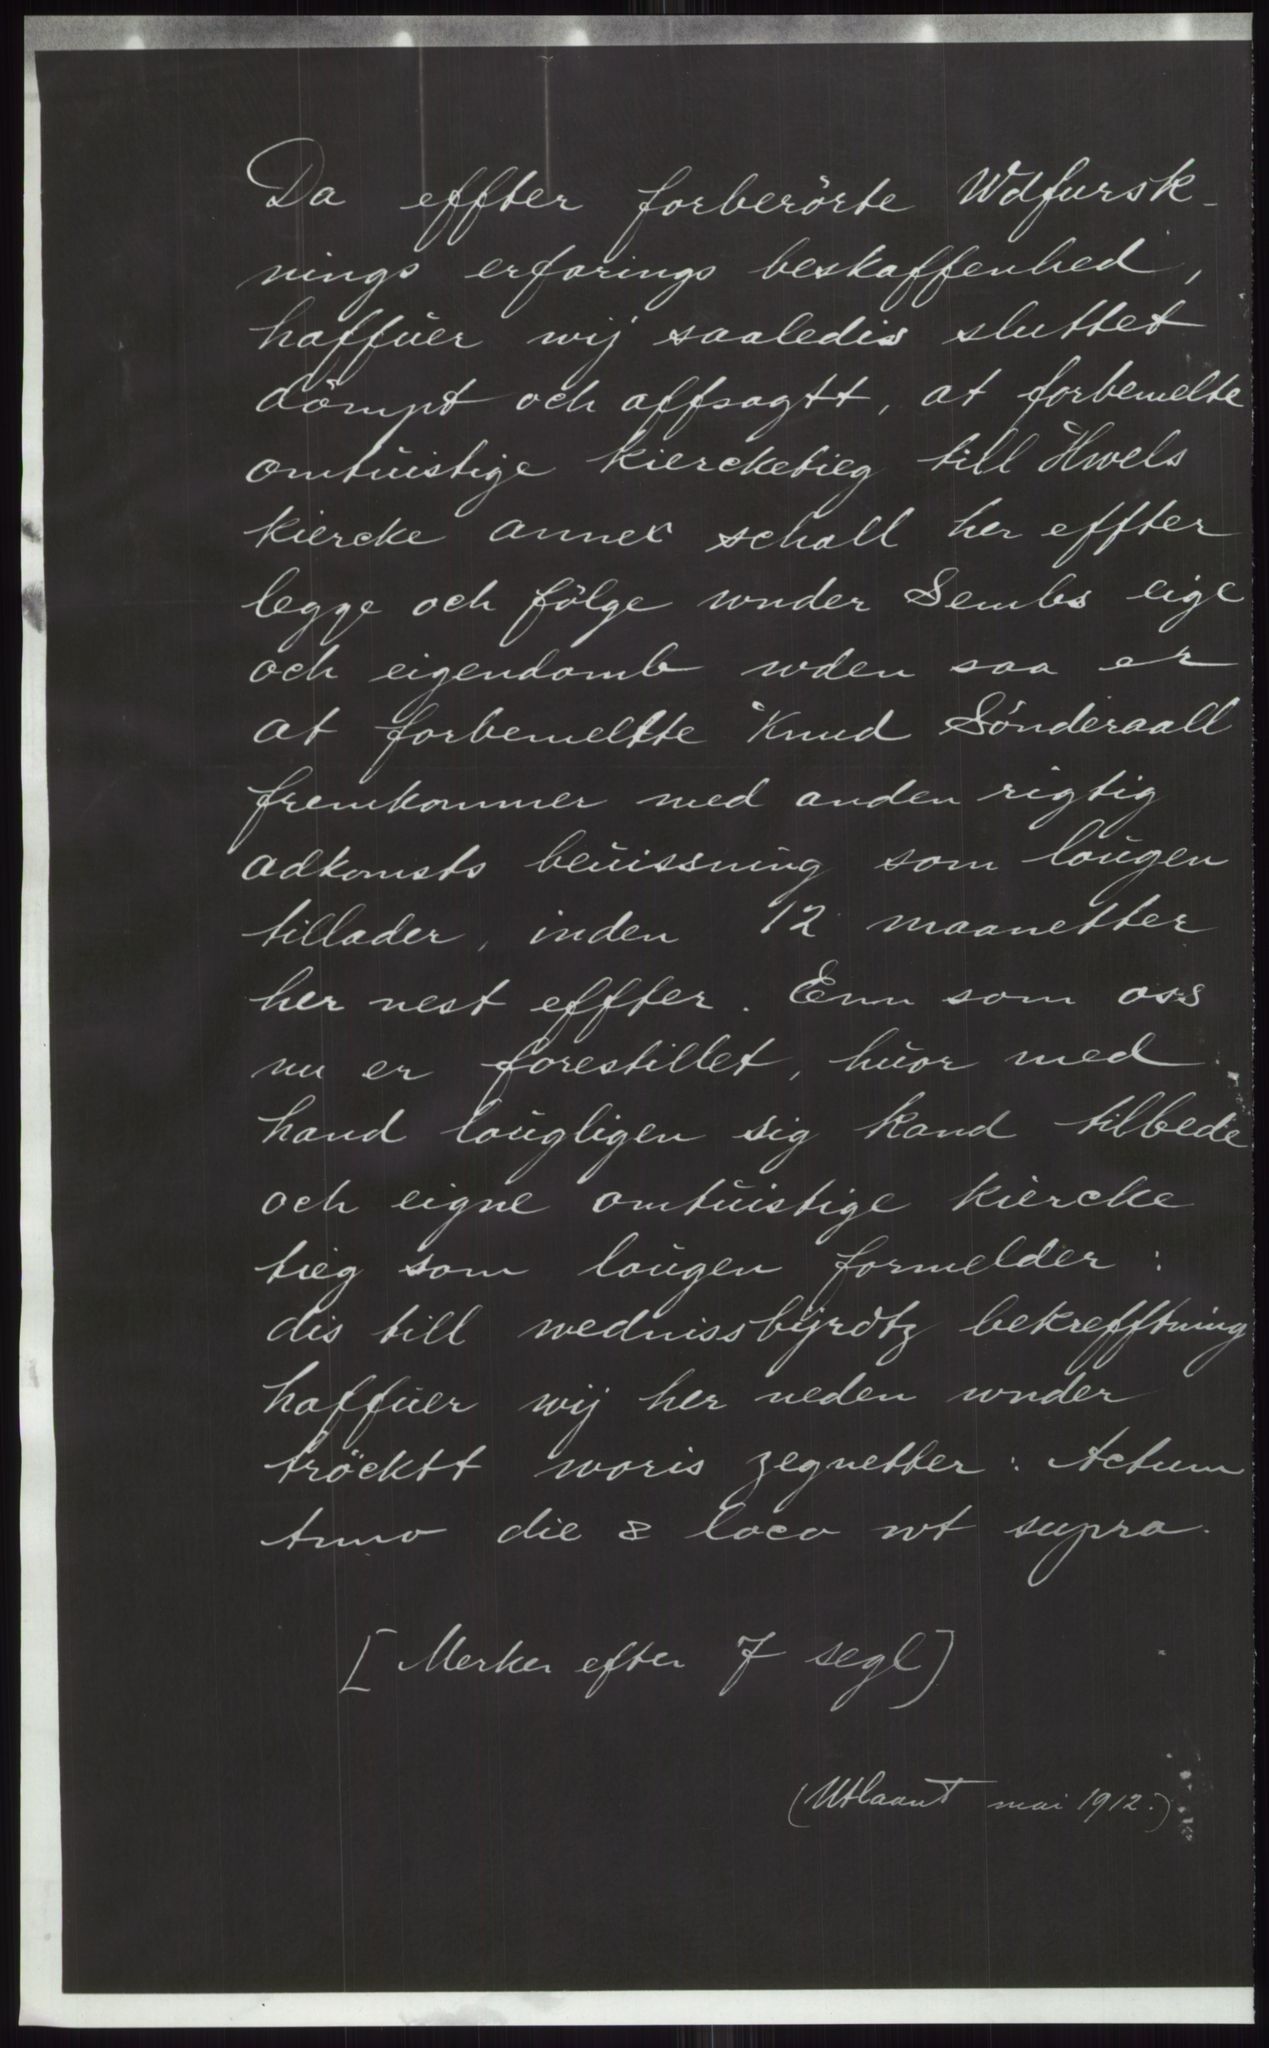 Da effter forberörte Wdfursk-
nings erfarings beskaffenhed,
haffuer wij saaledis sluttet
dömpt och affsagtt, at forbemelte
omtuistige kiercketieg till Hwels
kiercke annex schall her effter
legge och fölge wnder Sembs eige
och eigendomb wden saa er
at forbemeltte Knud Sønderaall
fremkommer med anden rigtig
adkomsts beuissning som lougen
tillader, inden 12 maanetter
her nest effter. Enn som oss
nu er forestillet, huor med
hand lougligen sig kand tilbede
och eigne omtuistige kiercke
tieg som lougen formelder:
dis till wednissbyrdtz bekrefftning
haffuer wij her neden wnder
tröcktt woris zegnetter: Actum
Anno die & loco wt supra.
[Merker efter 7 segl]
(Utlaant mai 1912.)